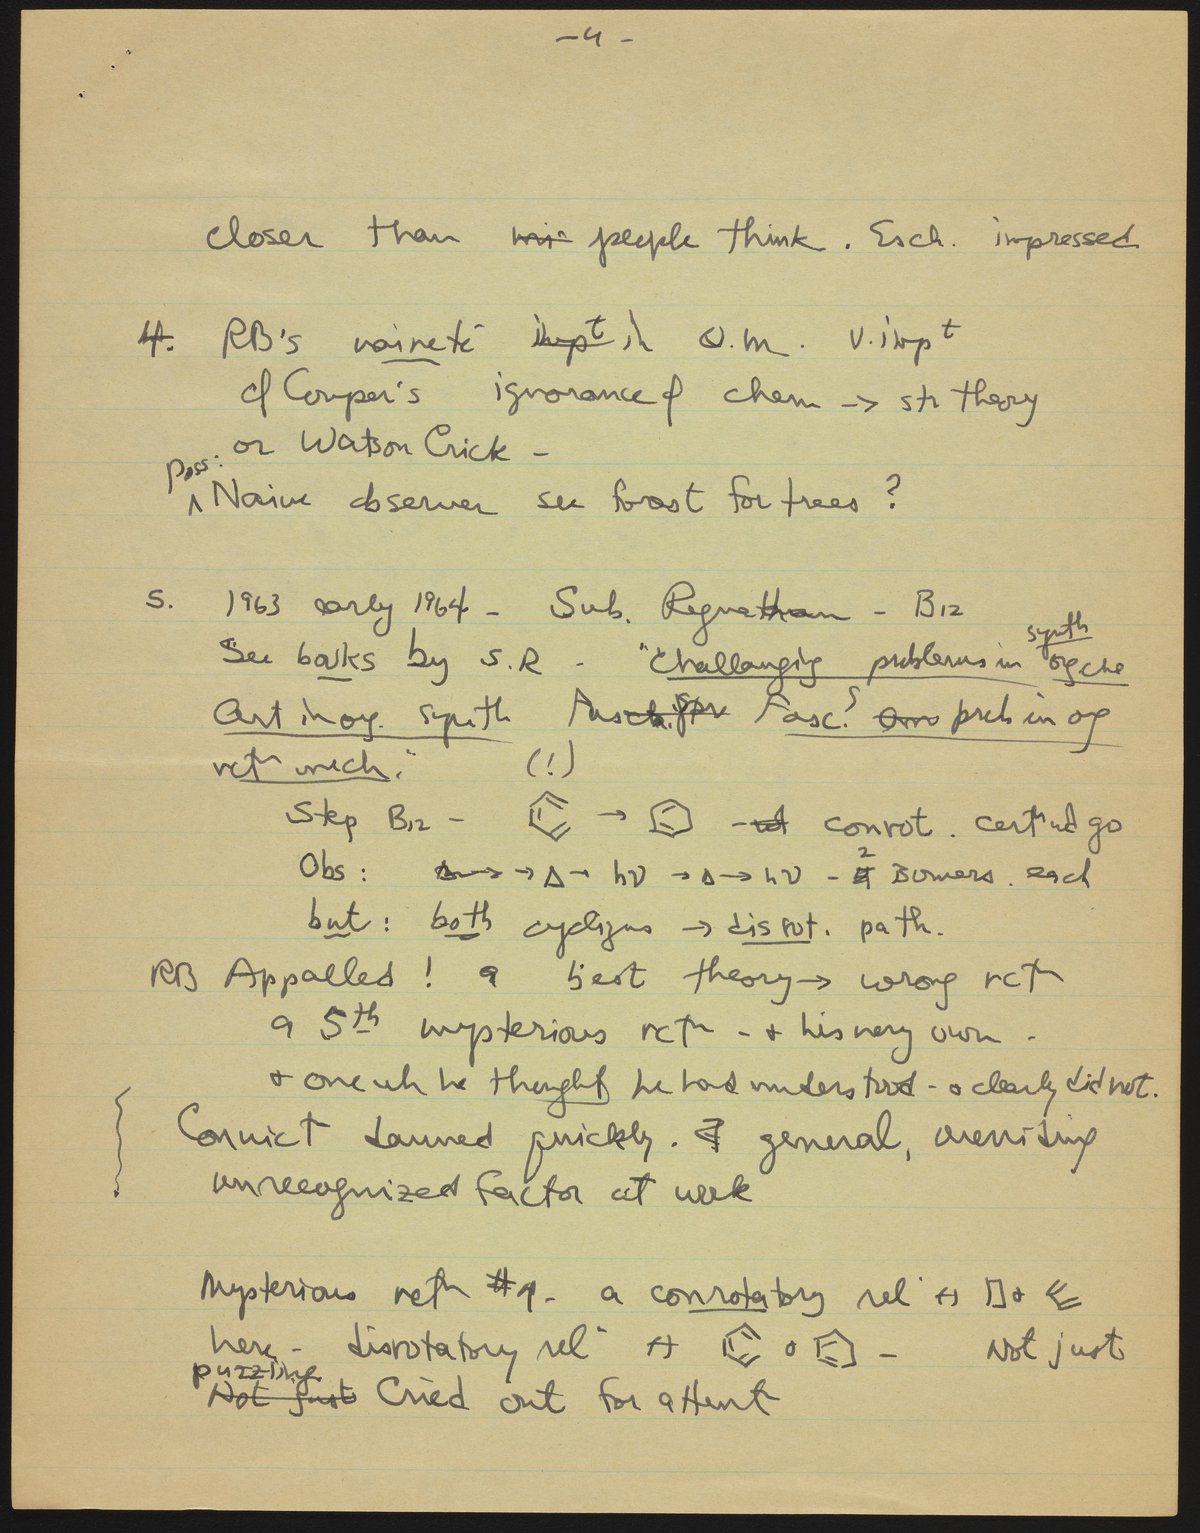 -4-
closer than people think. Esch. impressed
4. RB's naineté impt in O.M. V. impt
cf Couper's ignorance of chem → str theory
or Watson Crick -
poss:
^ Naive observer see forest for trees?
5. 1963 early 1964 - Sub. - B12
synth
See books by S.R - "Challanging problems in og che
Art in og. synth Fasc. prob in og
rctn mech." (!)
Step B12 - → - conrot. certnd go
Obs: → Δ → hν → Δ → hν - 2 isomers. each
but: both cyclizns → disrot. path.
RB Appalled! a best theory → wrong rctn
a 5th mysterious rctn - & his very own -
& one wh he thought he had understood - & clearly did not.
Convict dawned quickly. general, overriding
unrecognized factor at work
Mysterious rctn #4 - a conrotatory reln ↔ &
here - disrotatory reln ↔ & - Not just
puzzling
Not just Cried out for attent